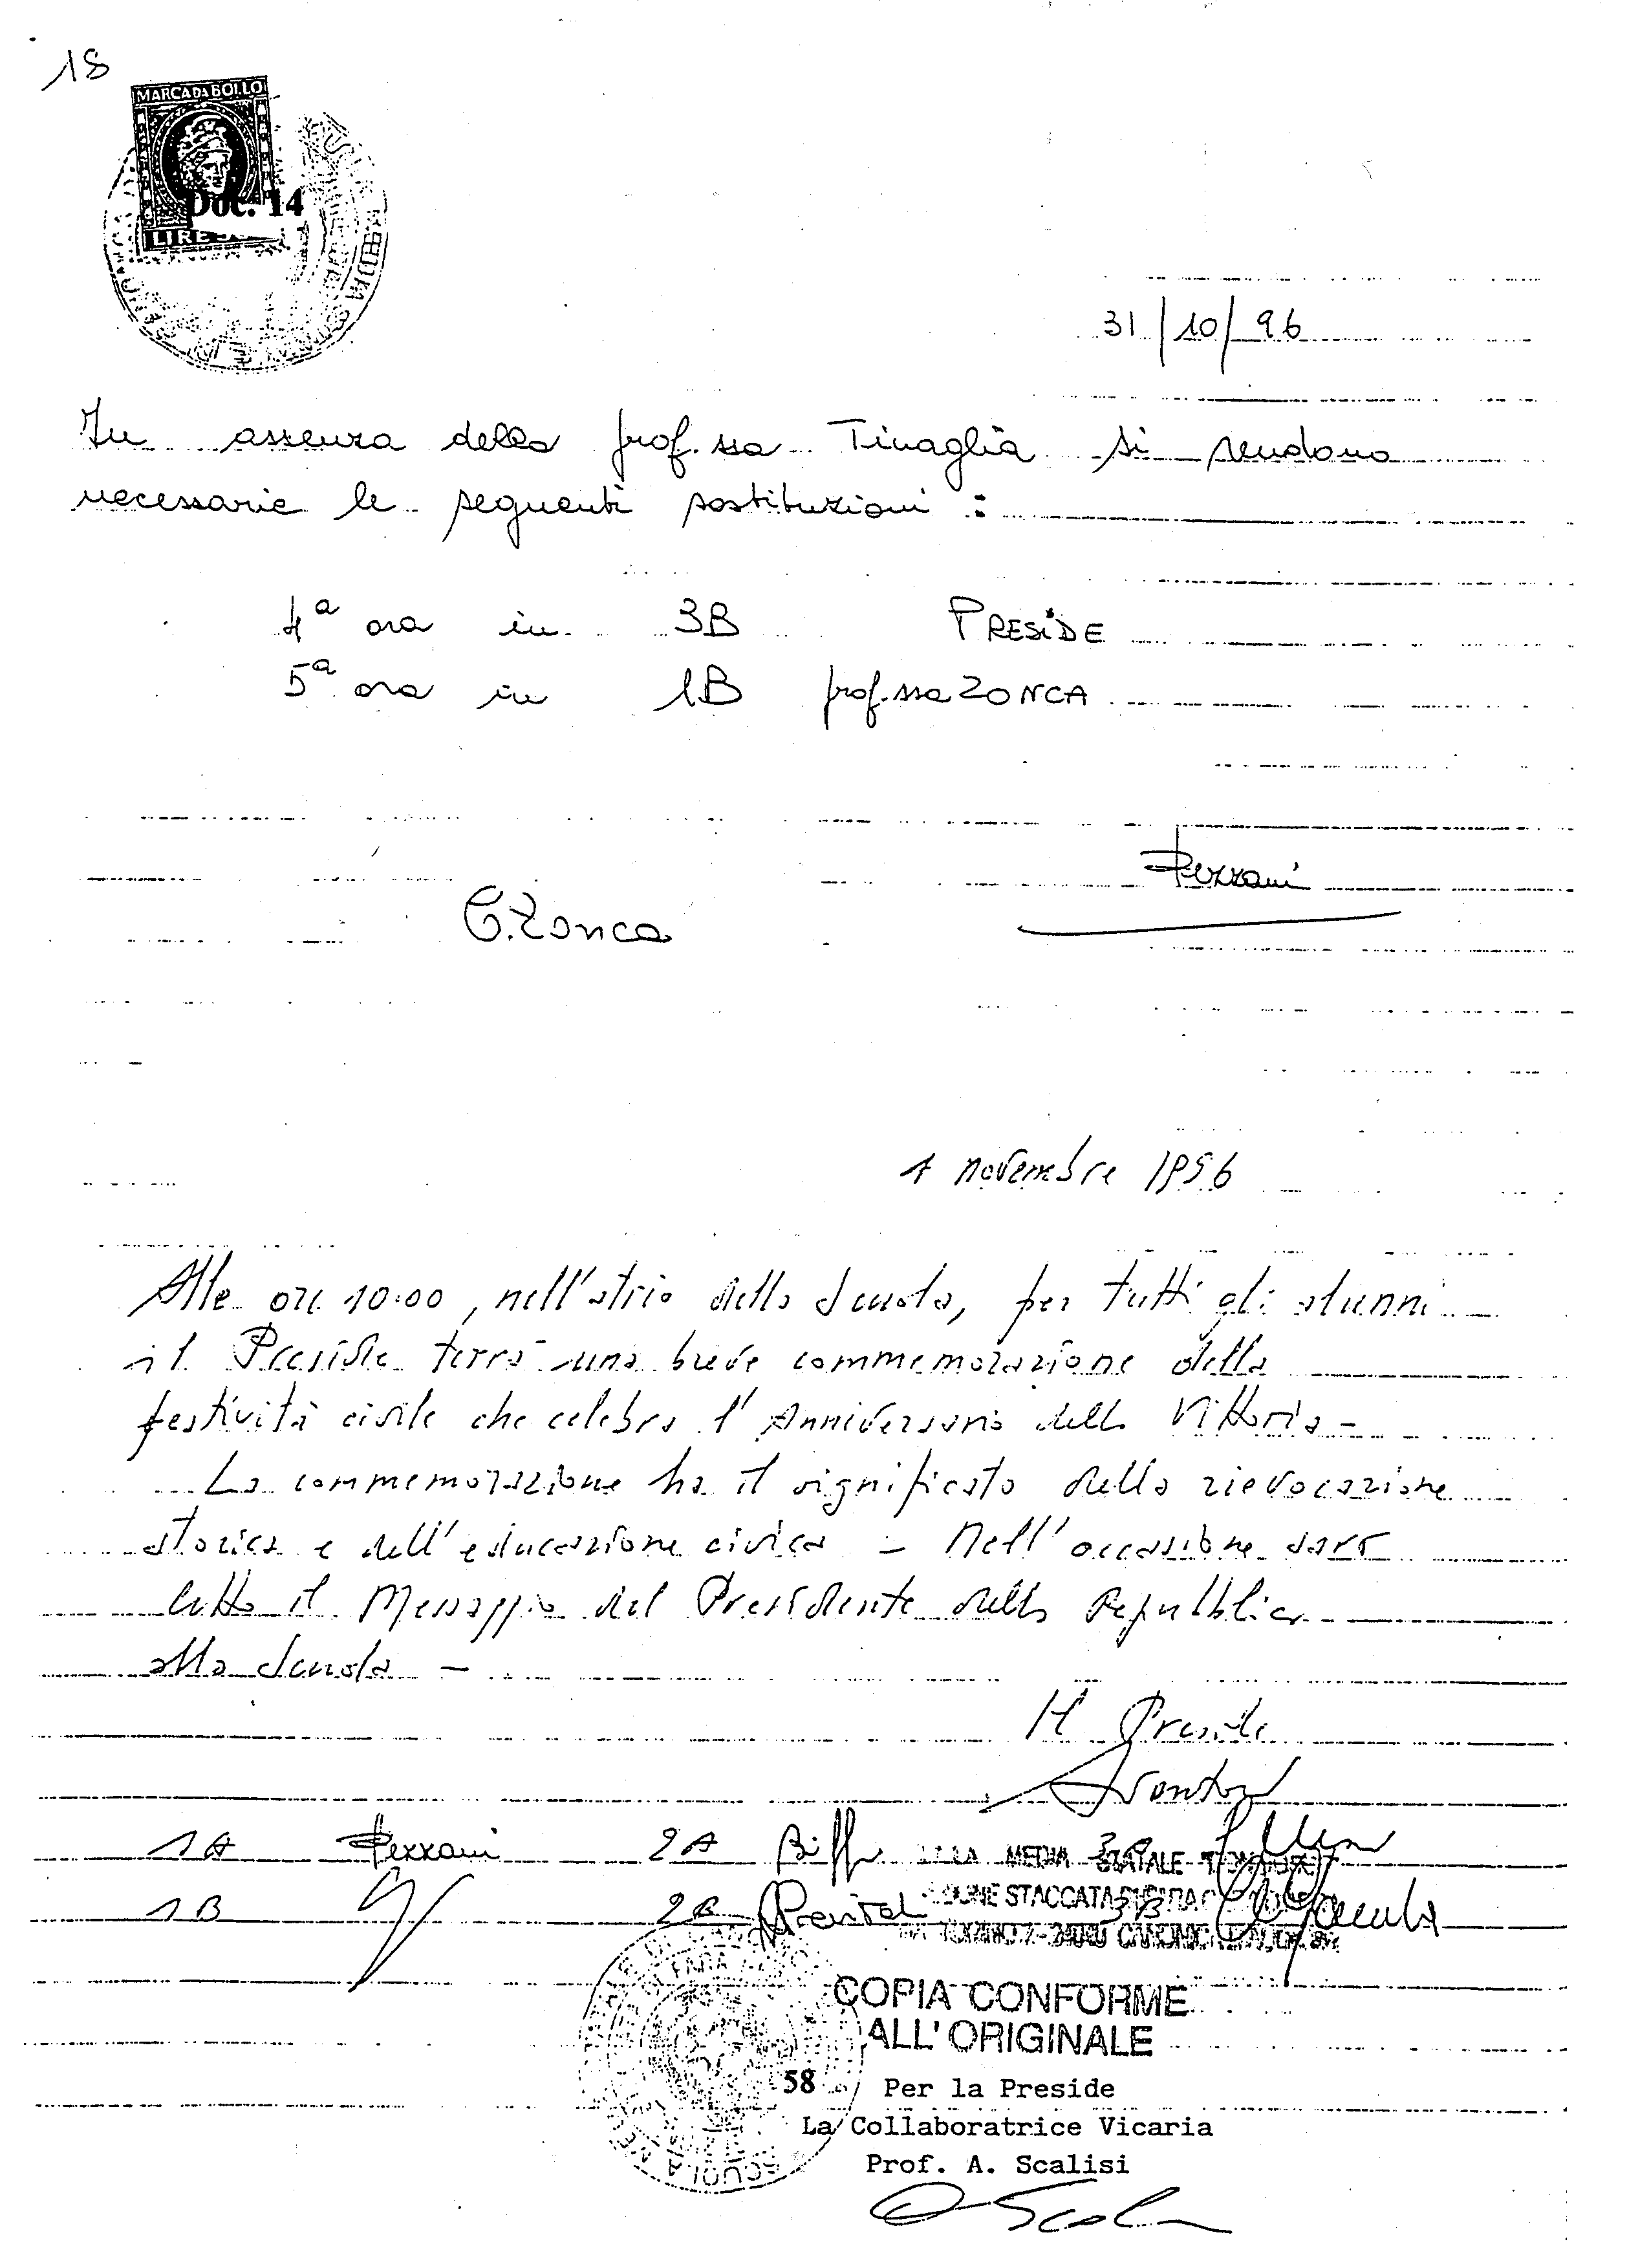 18
MARCA DA BOLLO
Doc. 14
LIRE
31/10/96
In assenza della prof.ssa Tinaglia si rendono
necessarie le seguenti sostituzioni :
4ª ora in 3B PRESIDE
5ª ora in 1B prof.ssa ZONCA
Pezzani
G. Zonca
4 novembre 1996
Alle ore 10:00, nell'atrio della Scuola, per tutti gli alunni
il Preside terrà una breve commemorazione della
festività civile che celebra l'Anniversario della Vittoria -
La commemorazione ha il significato della rievocazione
storica e dell'educazione civica - Nell'occasione sarà
letto il Messaggio del Presidente della Repubblica
alla Scuola -
Il Preside
1A Pezzani 2A Biffi 3A
MEDIA STATALE
1B 2B 3B
STACCATA
COPIA CONFORME
ALL'ORIGINALE
58
Per la Preside
La Collaboratrice Vicaria
Prof. A. Scalisi